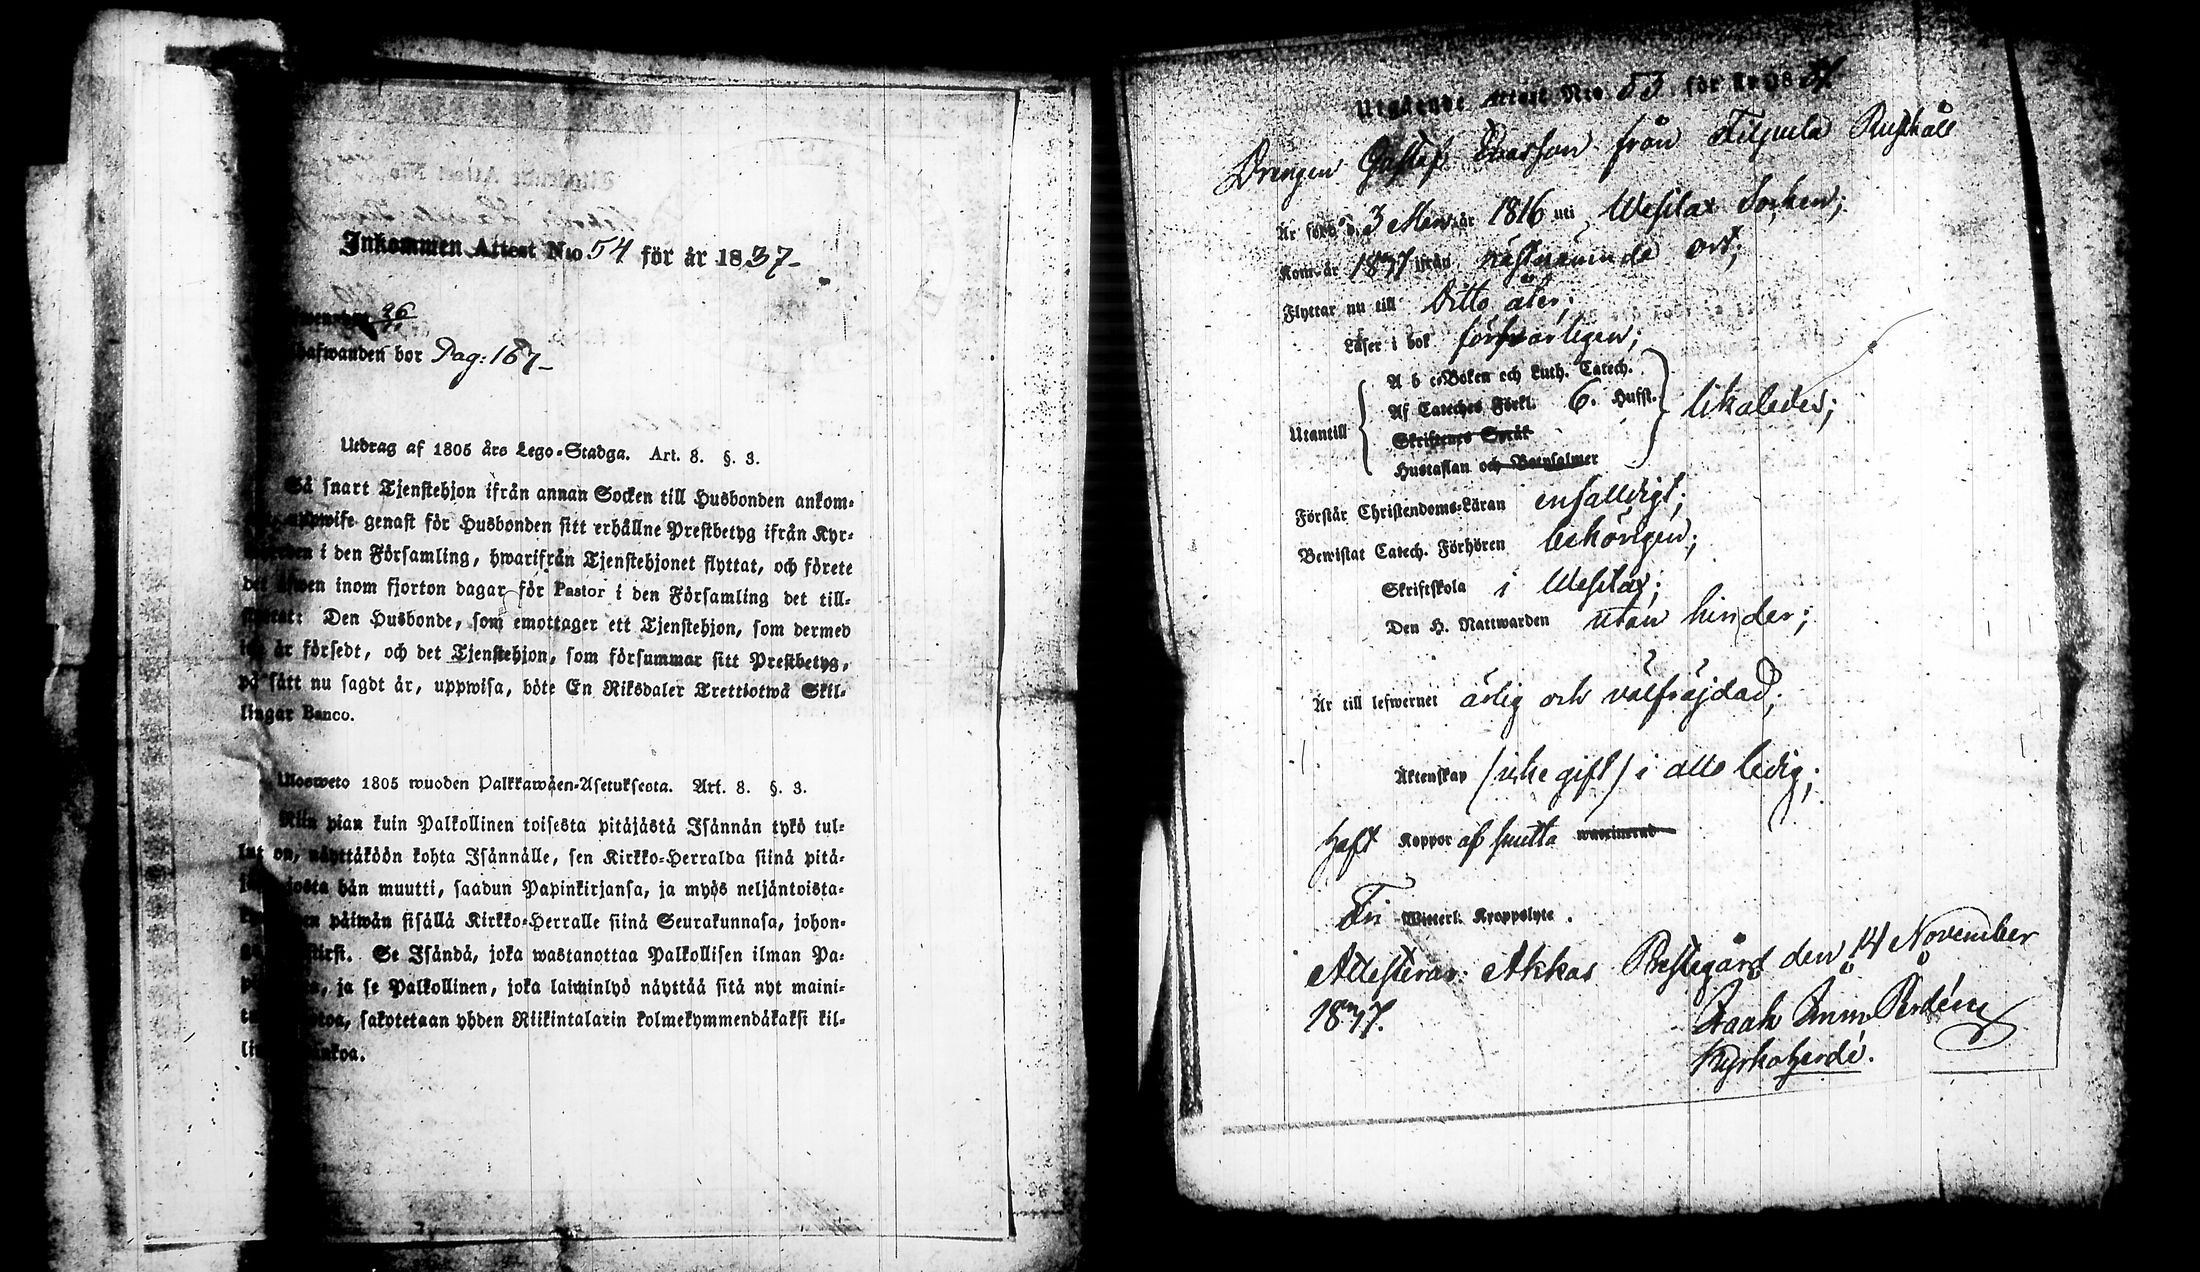 Inkommen Attest N:o 54 för år 1837-
26
hafwanden bor Pag: 167-
Utdrag af 1805 års Lego-Stadga. Art. 8. §. 3.
Så snart Tjenstehjon ifrån annan Socken till Husbonden ankom-
uppwise genast för Husbonden sitt erhållne Prestbetyg ifrån Kyr-
i den Församling, hwarifrån Tjenstehjonet flyttat, och förete
det äfwen inom fjorton dagar för Pastor i den Församling det till-
Den Husbonde, som emottager ett Tjenstehjon, som dermed
är försedt, och det Tjenstehjon, som försummar sitt Prestbetyg,
på sätt nu sagdt är, uppwisa, böte En Riksdaler Trettiotwå Skil-
lingar Banco.
Ulosweto 1805 wuoden Palkkawäen-Asetuksesta. Art. 8. §. 3.
Niin pian kuin Palkollinen toisesta pitäjästä Isännän tykö tul-
lut on, näyttäköön kohta Isännälle, sen Kirkko-Herralda siinä pitä-
josta hän muutti, saadun Papinkirjansa, ja myös neljäntoista-
päiwän sisällä Kirkko-Herralle siinä Seurakunnasa, johon-
Se Isändä, joka wastanottaa Palkollisen ilman Pa-
ja se Palkollinen, joka laiminlyö näyttää sitä nyt maini-
sakotetaan yhden Riikintalarin kolmekymmendäkaksi kil-
Utgående Attest N:o 53. för år 1837.
Drengen Gustaf Isaksson från Filpula Rusthåll
Är född d. 3 Mars år 1816 uti Westlax Socken;
Kom år 1837 ifrån nästnämnde ort;
Flyttar nu till Ditto åter;
Läser i bok försvarligen;
A b c-Boken och Luth. Catech.
Af Cateches Förkl. 6. Hufst. likaledes;
Utantill
Skriftenes Språk
Hustaflan och Botpsalmer
Förstår Christendoms-Läran enfalldigt;
Bewistat Catech. Förhören behörigen;
Skriftskola i Westlax;
Den H. Nattwarden utan hinder;
Är till lefwernet ärlig och välfräjdad;
Äktenskap (icke gift) i allo ledig;
Haft Koppor af smitta waccinerad
Fri Witterl. Kroppslyte.
Attesterar. Akkas Prestegård den 14 November
1837.
Kyrkoherde.